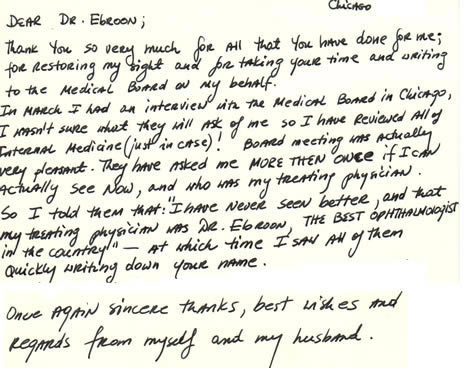 Chicago
Dear Dr. Ebroon;
Thank you so very much for all that you have done for me;
for restoring my sight and for taking your time and writing
to the Medical Board on my behalf.
In March I had an interview with the Medical Board in Chicago,
I wasn't sure what they will ask of me so I have reviewed all of
Internal Medicine (just in case)! Board meeting was actually
very pleasant. They have asked me MORE THEN ONCE if I can
actually see now, and who was my treating physician.
So I told them that: "I have never seen better, and that
my treating physician was Dr. Ebroon, THE BEST OPHTHALMOLOGIST
in the country" – at which time I saw all of them
quickly writing down your name.
Once again sincere thanks, best wishes and
regards from myself and my husband.